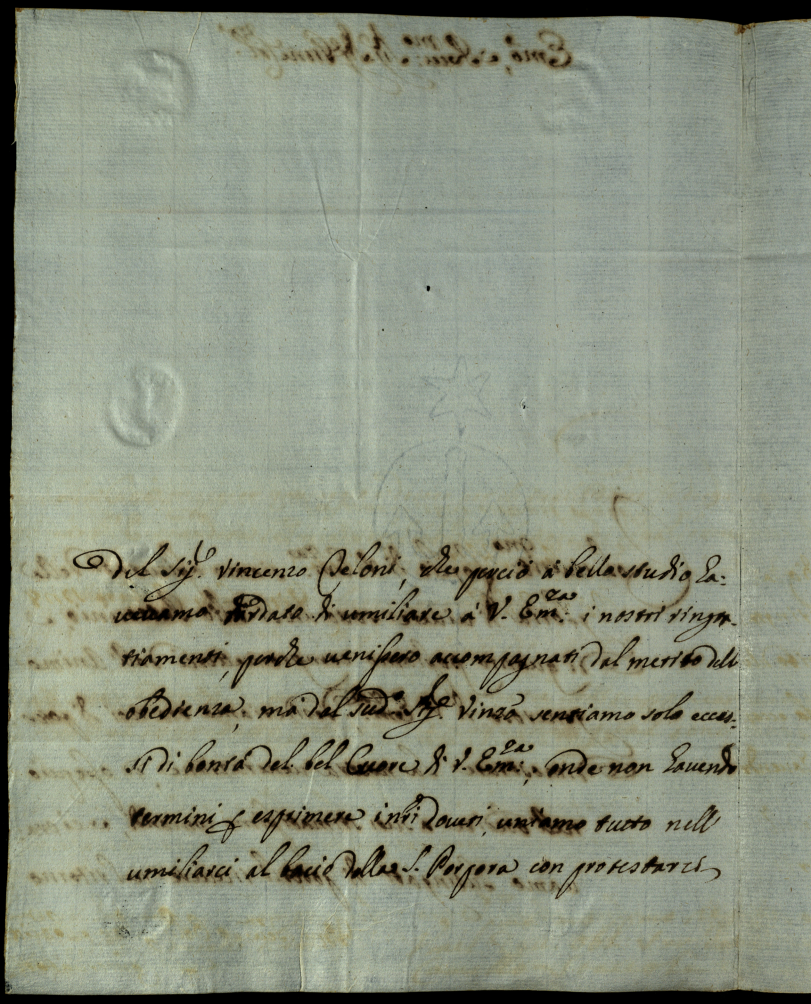 del Sig.r Vincenzo Beloni, che perciò à bello studio ha:
uevamo tardato di umiliare à V. Em.za i nostri ringra-
tiamenti, perche venissero accompagnati dal merito dell
obedienza, ma dal sud.o Sig.r Vinzo sentiamo solo ecces:
si di bontà del bel Cuore di V. Em.za; onde non havendo
termini p esprimere i nri doveri, uniamo tutto nell'
umiliarci al bacio della S. Porpora con protestarci